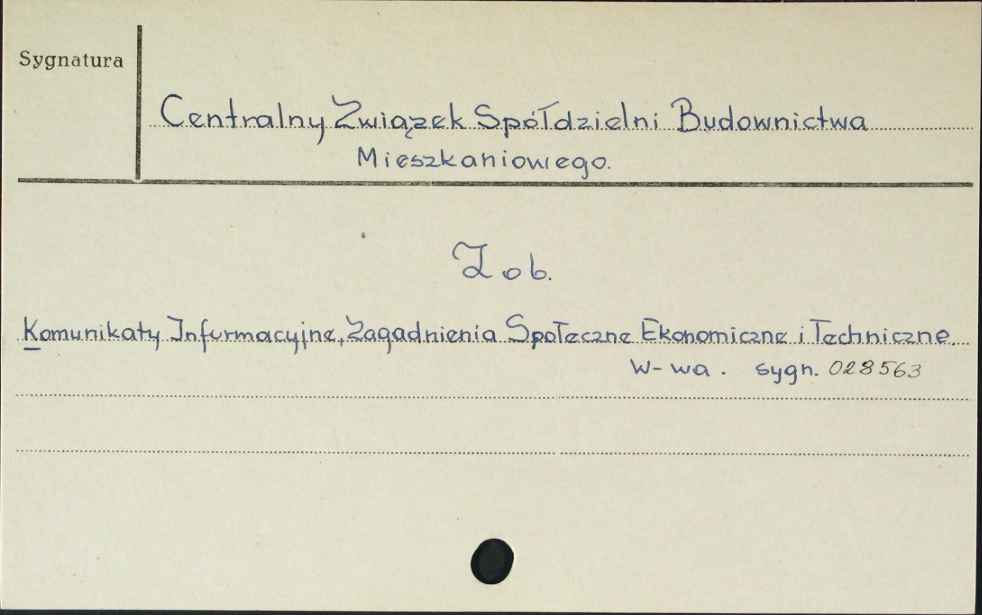 Sygnatura
Centralny Związek Spółdzielni Budownictwa
Mieszkaniowego.
Zob.
Komunikaty Informacyjne, Zagadnienia Społeczne Ekonomiczne i Techniczne.
W-wa. sygn. 028563